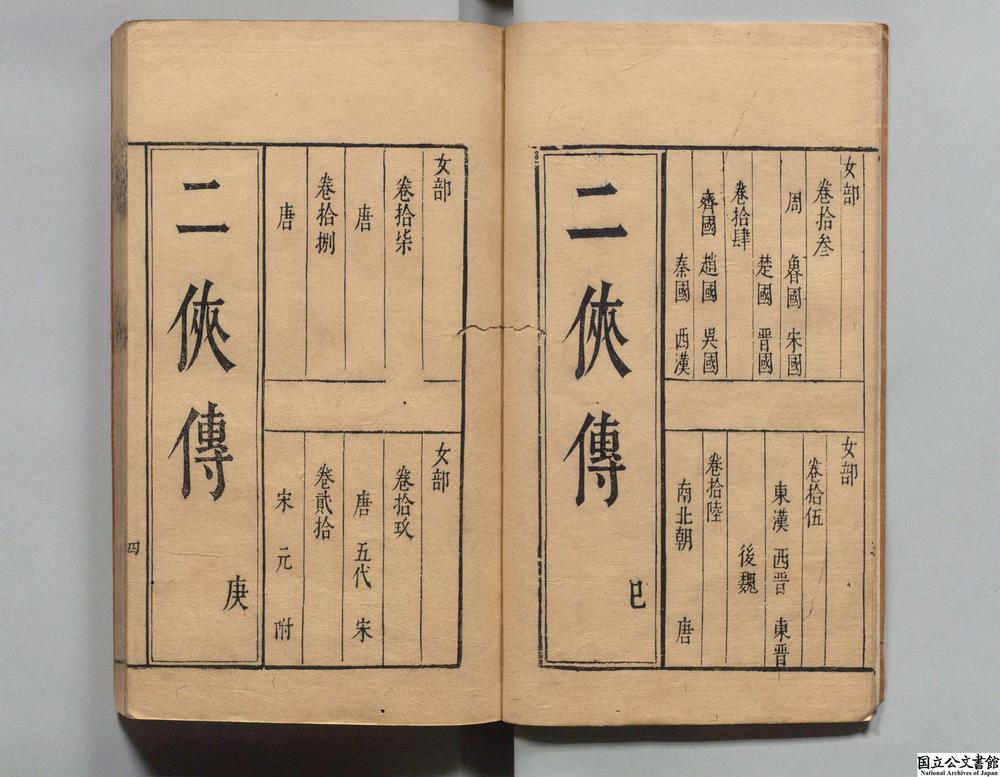 女部
卷拾叁
周 魯國 宋國
楚國 晋國
卷拾肆
齊國 趙國 吳國
秦國 西漢
女部
卷拾伍
東漢 西晋 東晋
後魏
卷拾陸
南北朝 唐
二俠傳
巳
女部
卷拾柒
唐
卷拾捌
唐
女部
卷拾玖
唐 五代 宋
卷貳拾
宋 元 附
二俠傳
庚
四
国立公文書館
National Archives of Japan